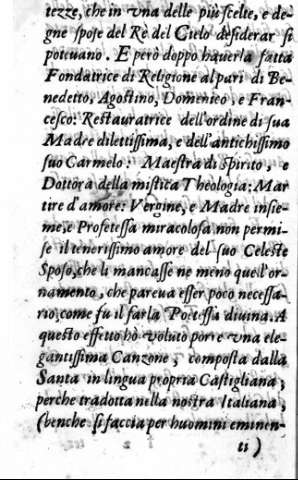 tezze, che in vna delle più scelte, e de-
gne spose del Rè del Cielo desiderar si
poteuano. E però doppo hauerla fatta
Fondatrice di Religione al pari di Be-
nedetto, Agostino, Domenico, e Fran-
cesco: Restauratrice dell'ordine di sua
Madre dilettissima, e dell'antichissimo
suo Carmelo: Maestra di Spirito, e
Dottora della mistica Theologia: Mar
tire d'amore: Vergine, e Madre insie-
me, e Profetessa miracolosa non permi-
se il tenerissimo amore del suo Celeste
Sposo, che li mancasse ne meno quell'or-
namento, che pareua esser poco necessa-
rio, come fu il farla Poetessa diuina. A
questo effetto hò voluto porre vna ele-
gantissima Canzone, composta dalla
Santa in lingua propria Castigliana,
perche tradotta nella nostra Italiana,
(benche si faccia per huomini eminen-
ti)